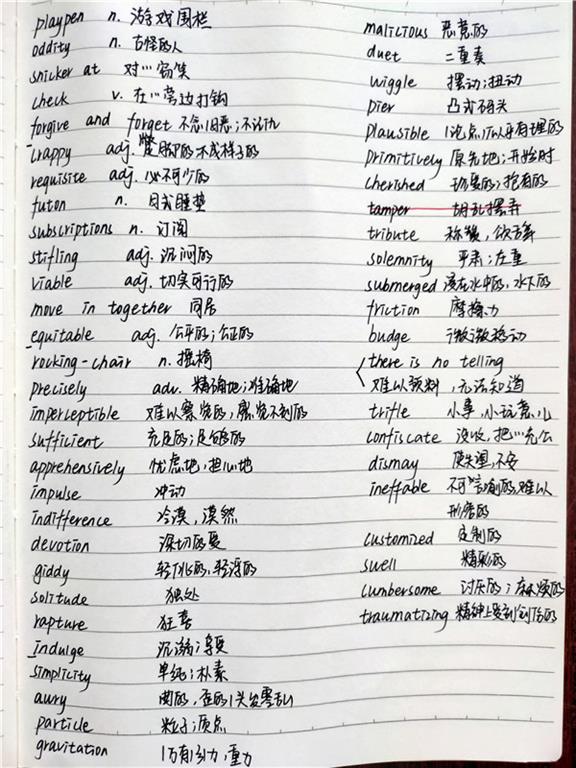 playpen n. 游戏围栏
oddity n. 古怪的人
snicker at 对…窃笑
check v. 在…旁边打钩
forgive and forget 不念旧恶;不记仇
crappy adj. 蹩脚的 不成样子的
requisite adj. 必不可少的
futon n. 日式睡垫
subscriptions n. 订阅
stifling adj. 沉闷的
viable adj. 切实可行的
move in together 同居
equitable adj. 公平的;公正的
rocking-chair n. 摇椅
precisely adv. 精确地;准确地
imperceptible 难以察觉的,感觉不到的
sufficient 充足的;足够的
apprehensively 忧虑地,担心地
impulse 冲动
indifference 冷漠,漠然
devotion 深切的爱
giddy 轻佻的,轻浮的
solitude 独处
rapture 狂喜
indulge 沉溺;享受
simplicity 单纯;朴素
awry 曲的,歪的|头发零乱
particle 粒子;质点
gravitation 万有引力,重力
malicious 恶意的
duet 二重奏
wiggle 摆动;扭动
pier 凸式码头
plausible (论点)似乎有理的
primitively 原先地;开始时
cherished 珍爱的;抱有的
tamper 胡乱摆弄
tribute 称赞,颂辞
solemnity 平肃;庄重
submerged 浸在水中的,水下的
friction 摩擦力
budge 微微移动
there is no telling
难以预料,无法知道
trifle 小事,小玩意儿
confiscate 没收,把…充公
dismay 使失望,不安
ineffable 不可言喻的,难以
形容的
customized 定制的
swell 精彩的
cumbersome 讨厌的;麻烦的
traumatizing 精神上受到创伤的